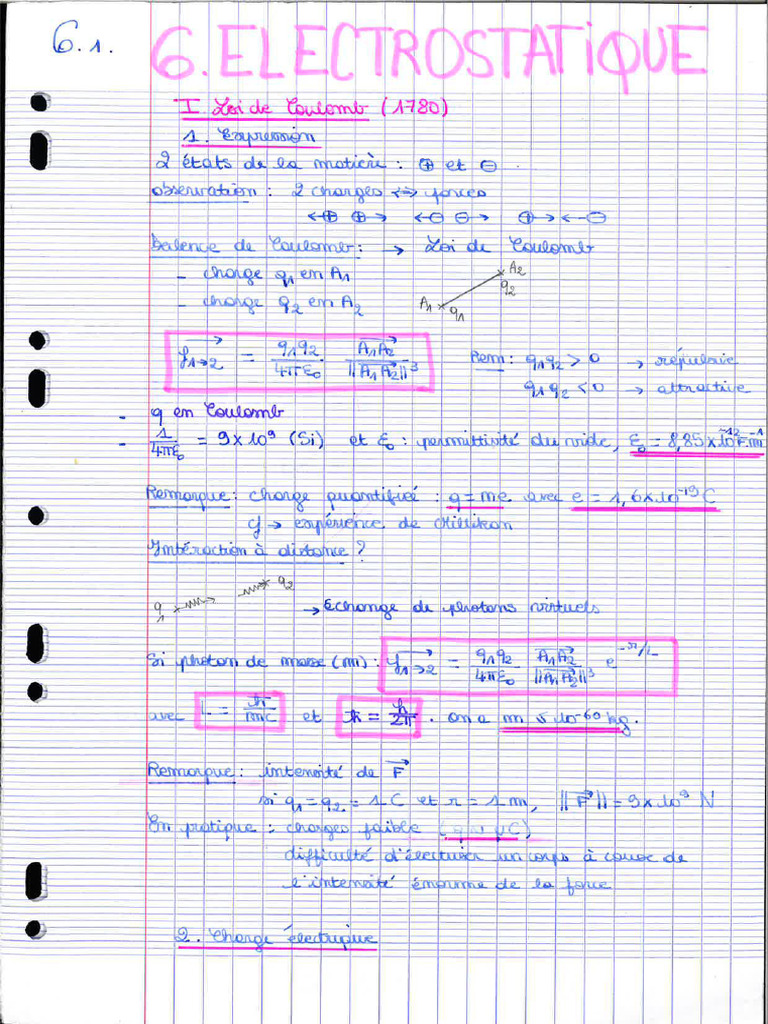 6.1.
6. ELECTROSTATIQUE
I Loi de Coulomb (1780)
1. Expression
2 états de la matière : ⊕ et ⊖ .
observation : 2 charges ⟺ forces
←⊕ ⊕→ ←⊖ ⊖→ ⊕→ ←⊖
Balence de Coulomb : → Loi de Coulomb
- charge q1 en A1
- charge q2 en A2
A1 q1 A2 q2
f1→2 = q1q2/4πε0 . A1A2/||A1A2||³
Rem : q1q2 > 0 → répulsive
q1q2 < 0 → attractive
- q en Coulomb
- 1/4πε0 = 9×10⁹ (Si) et ε0 : permittivité du vide, ε0 = 8,85×10⁻¹² F.m⁻¹
Remarque : charge quantifiée : q = me avec e = 1,6×10⁻¹⁹ C
↳ expérience de Millikan
Intéraction à distance ?
q1 q2
→ Echange de photons virtuels
Si photon de masse (m) : f1→2 = q1q2/4πε0 A1A2/||A1A2||³ e^(-r/L)
avec L = ħ/mc et ħ = h/2π . on a m ≤ 10⁻⁶⁰ kg.
Remarque : intensité de F
si q1 = q2 = 1 C et r = 1 m, ||F|| = 9×10⁹ N
En pratique : charges faible (q ~ μC)
difficulté d'électriser un corps à cause de
l'intensité énorme de la force
2. Charge électrique